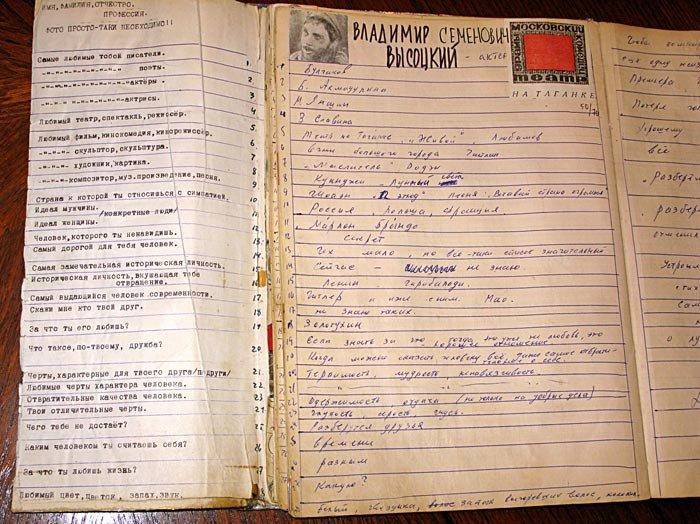 ИМЯ, ФАМИЛИЯ, ОТЧЕСТВО.
ПРОФЕССИЯ.
ФОТО ПРОСТО-ТАКИ НЕОБХОДИМО!!
Самые любимые тобой писатели. 1.
-"-"-"-"-"-"-"- поэты. 2.
-"-"-"-"-"-"-"- актёры. 3.
-"-"-"-"-"-"-"- актрисы. 4.
Любимый театр, спектакль, режиссёр. 5
Любимый фильм, кинокомедия, кинорежиссёр. 6
-"-"-"- скульптор, скульптура. 7
-"-"-"- художник, картина. 8
-"-"-"- композитор, муз. произведение, песня. 9
Страна к которой ты относишься с симпатией. 10
Идеал мужчины. 11
/конкретные люди/
Идеал женщины. 12
Человек, которого ты ненавидишь. 13
Самый дорогой для тебя человек.
Самая замечательная историческая личность.
Историческая личность, внушающая тебе
отвращение. 16
Самый выдающийся человек современности. 17
Скажи мне кто твой друг. 18
За что ты его любишь? 19
Что такое, по-твоему, дружба? 20.
Черты, характерные для твоего друга/подруги/ 21
Любимые черты характера человека. 22.
Отвратительные качества человека. 23.
Твои отличительные черты. 24
Чего тебе не достаёт? 25
Каким человеком ты считаешь себя? 26
За что ты любишь жизнь? 27
Любимый цвет, цветок, запах, звук.
ВЛАДИМИР СЕМЕНОВИЧ
ВЫСОЦКИЙ - актёр
МОСКОВСКИЙ
ТЕАТР
НА ТАГАНКЕ
Булгаков
Б. Ахмадулина
М. Яншин
З. Славина
Театр на Таганке, "Живой" Любимов
Огни большого города Чаплин
"Мыслитель" Роден
Куинджи "Лунный свет"
Шопен "12 этюд" Песня: "Вставай страна огромная"
Россия, Польша, Франция
Марлон Брандо
Секрет
Их мало - но все-таки список значительный
Сейчас - не знаю
Ленин Гарибальди.
Гитлер и иже с ним. Мао.
не знаю таких.
Золотухин
Если знать за что, тогда это уже не любовь, это
хорошее отношение
Когда можешь сказать человеку всё, даже самое отврати-
тельное о себе.
Терпимость, мудрость, ненавязчивость.
" "
Одержимость, отдача (но только на добрые дела)
Глупость, серость, гнусь.
Разберутся друзья
времени
разным
Какую?